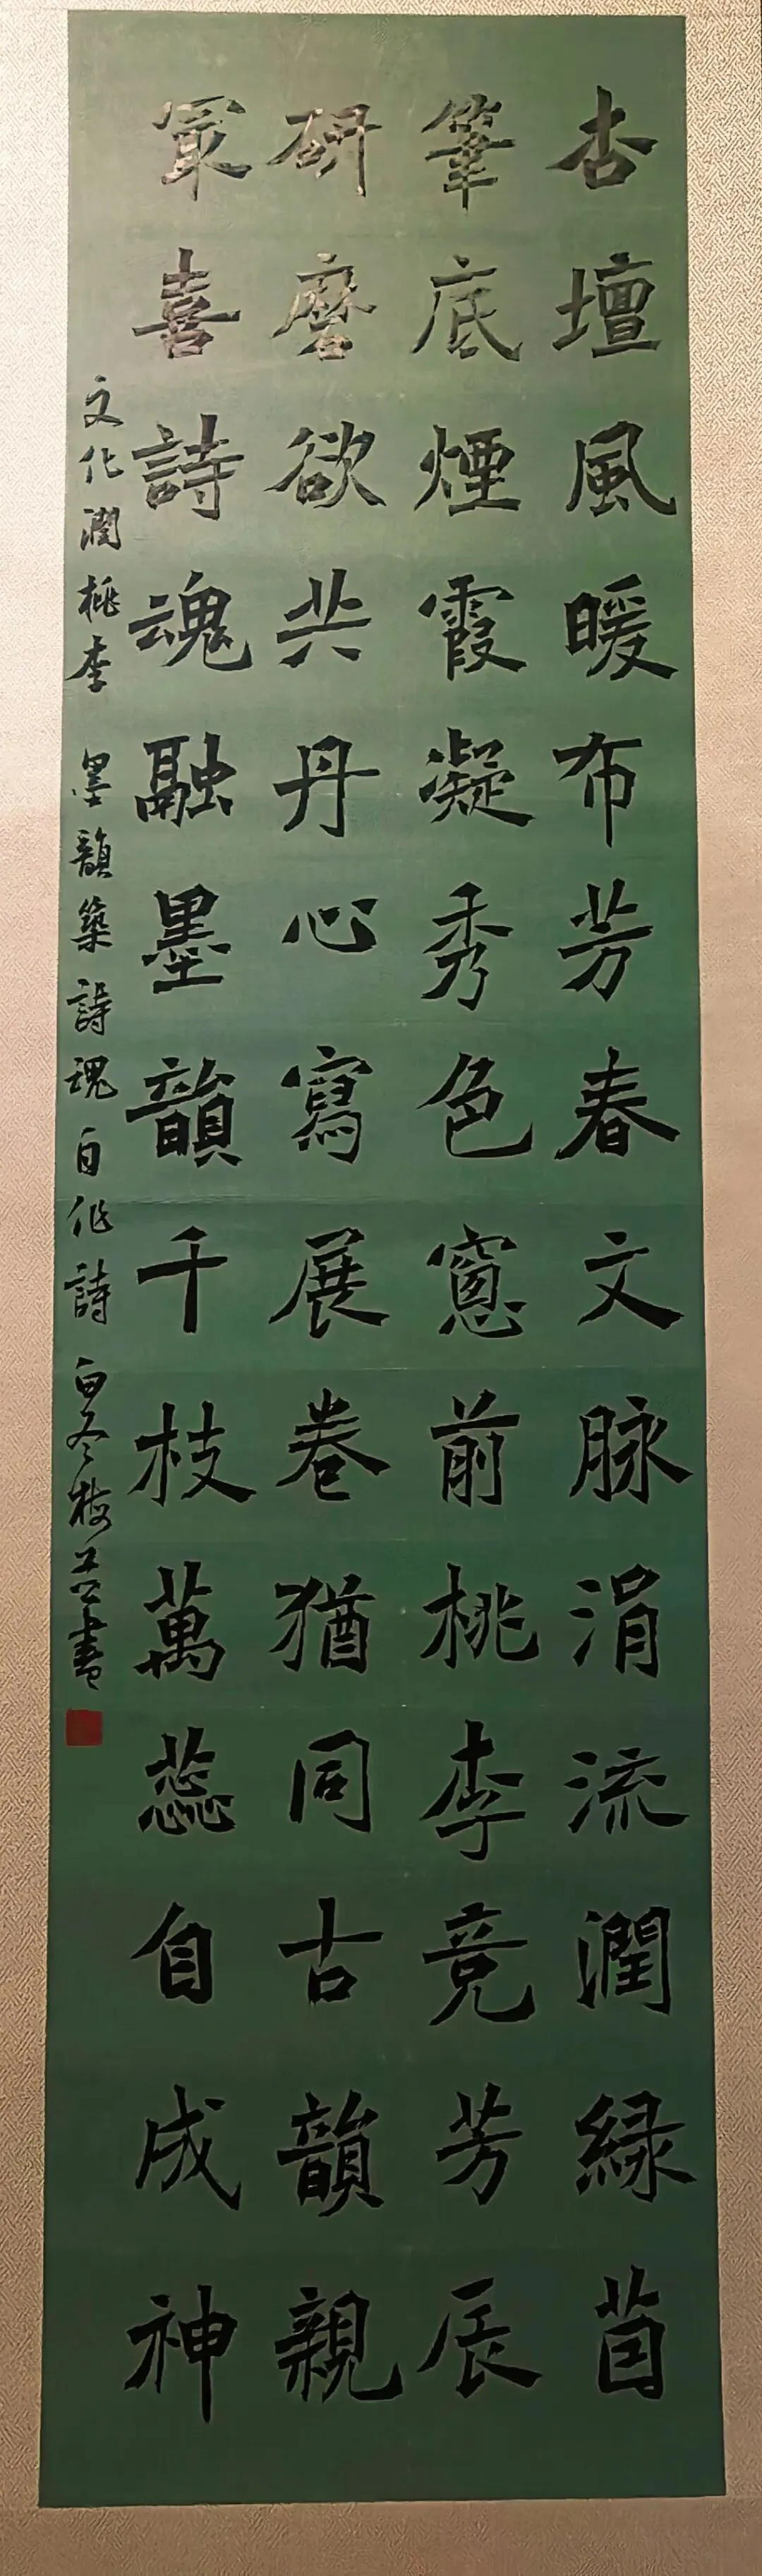 杏壇風暖布芳春文脉涓流潤緑茵
筆底煙霞凝秀色窻前桃李竞芳辰
研磨欲共丹心寫展卷猶同古韻親
冣喜詩魂融墨韻千枝萬蕊自成神
文化潤桃李 墨韻築詩魂 自作詩 白冬梅并書